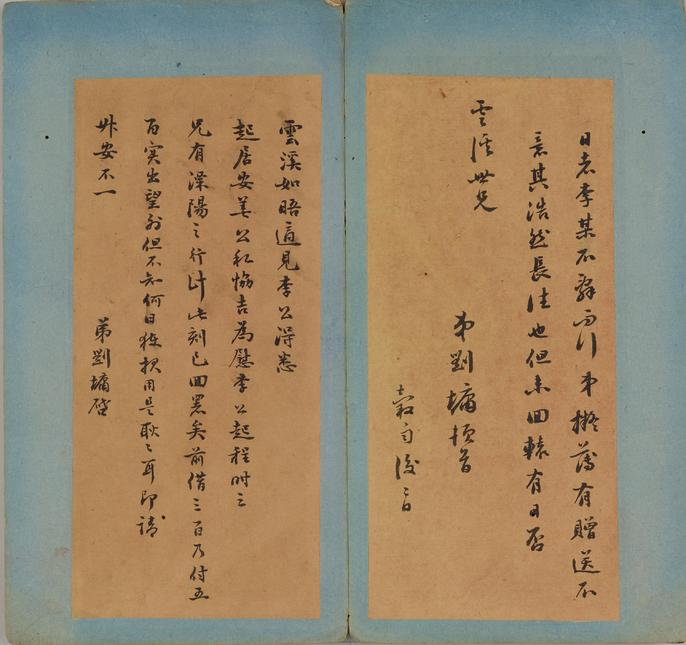 日者李某不辭而行弟擬薄有贈送不
意其浩然長往也但未回轅有日否
雲溪世兄
弟劉墉頓首
穀雨後二日
雲溪如晤適見李公得悉
起居安善公私協吉為慰李公起程時云
兄有溧陽之行計此刻已回署矣前借三百乃付五
百實出望外但不知何日獲撥用是耿〻耳即請
升安不一
弟劉墉啓